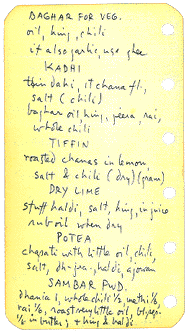 BAGHAR FOR VEG.
oil, hing, chili
if also garlic, use ghee
KADHI
thin dahi, 1t chana fl.,
salt (chili)
baghar oil hing, jeera, rai,
whole chili
TIFFIN
roasted chanas in lemon
salt & chili (dry) (gram)
DRY LIME
stuff haldi, salt, hing, in juice
rub oil when dry
POTEA
chapati with little oil, chili,
salt, dh-jee-, haldi, ajowan
SAMBAR PWD.
dhania 1, whole chili ½, methi ⅛,
rai ⅛, roast very little oil,
in butter, + hing & haldi